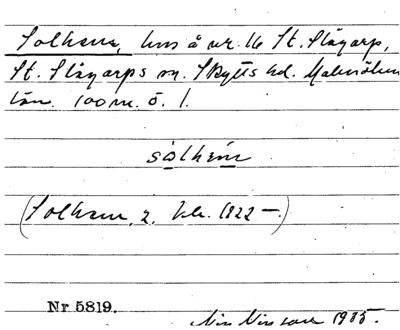 Solhem, hus å nr. 16 St. Slågarp,
St. Slågarps sn. Skytts hd. Malmöhus
län. 100 m. ö. 1.
sólhém
(Solhem, 2. 1922 —.)
Nr 5819.
Nils Nilsson 1935.